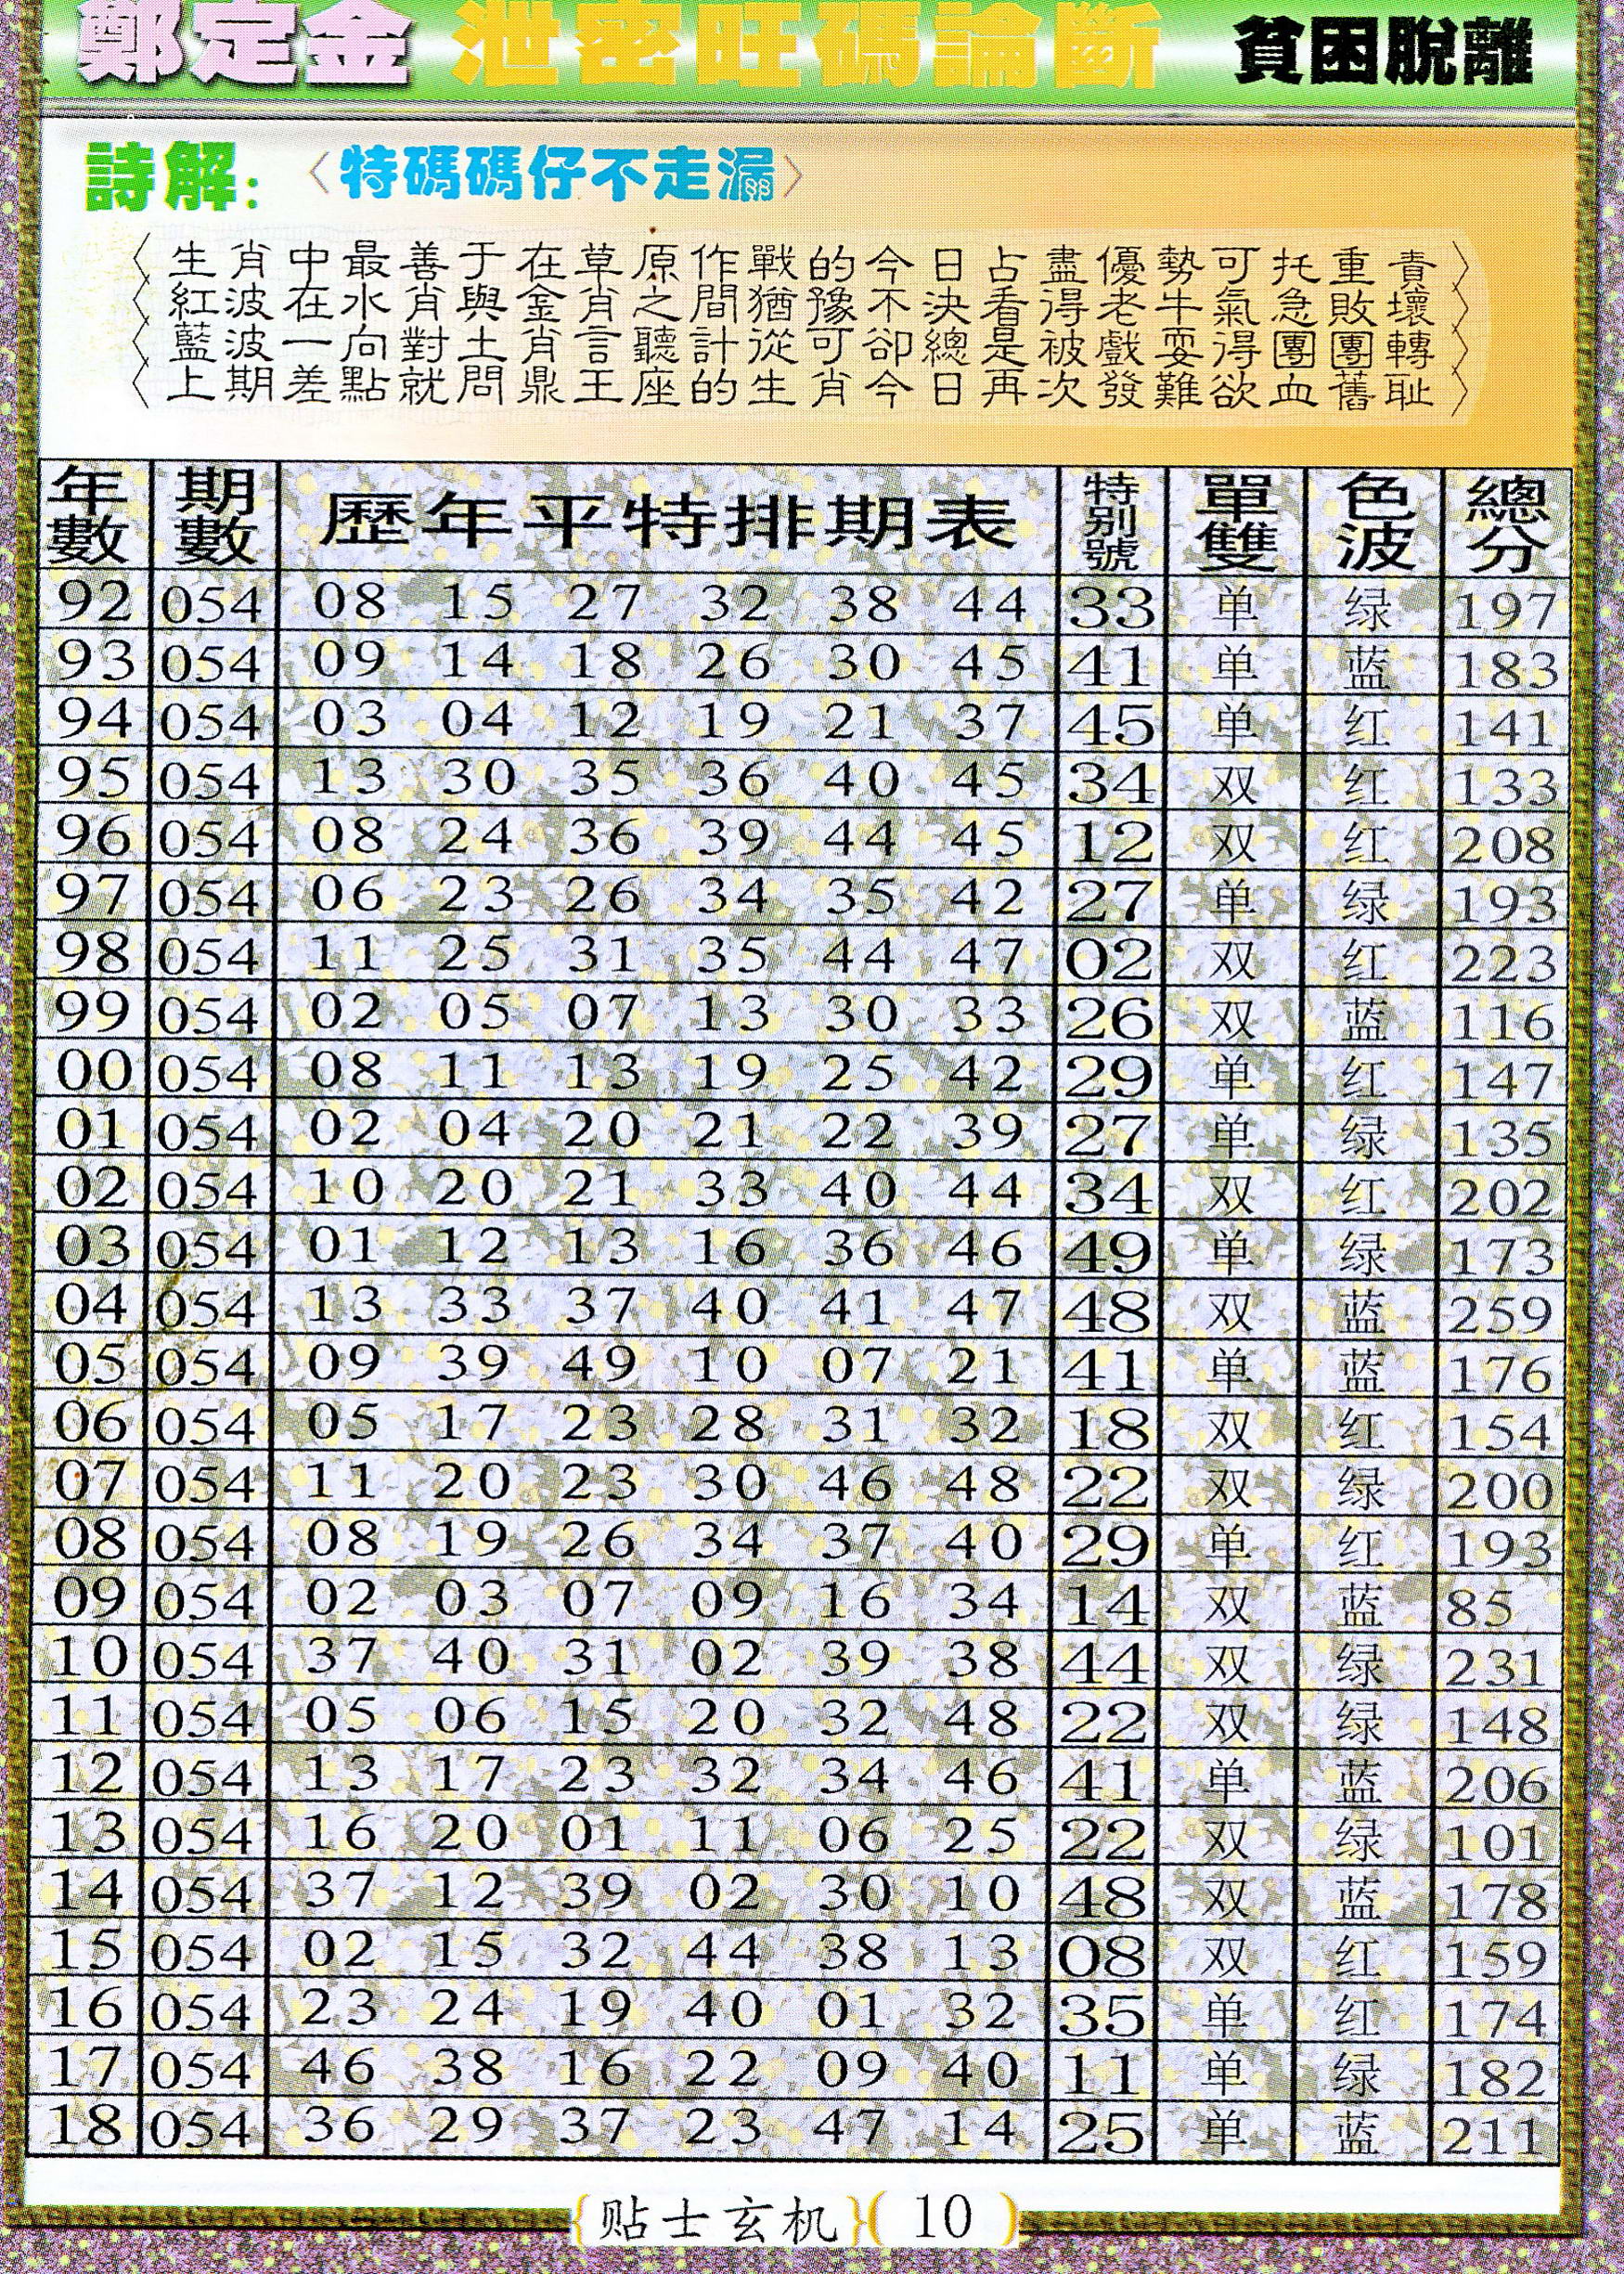 鄭定金 泄密旺碼論斷 貧困脫離
詩解: 〈特碼碼仔不走漏〉
〈生肖中最善于在草原作戰的今日占盡優勢可托重責〉
〈紅波在水肖與金肖之間猶豫不決看得老牛氣急敗壞〉
〈藍波一向對土肖言聽計從可卻總是被戲耍得團團轉〉
〈上期差點就問鼎王座的生肖今日再次發難欲血舊耻〉
年數 期數 歷年平特排期表 特別號 單雙 色波 總分
92 054 08 15 27 32 38 44 33 单 绿 197
93 054 09 14 18 26 30 45 41 单 蓝 183
94 054 03 04 12 19 21 37 45 单 红 141
95 054 13 30 35 36 40 45 34 双 红 133
96 054 08 24 36 39 44 45 12 双 红 208
97 054 06 23 26 34 35 42 27 单 绿 193
98 054 11 25 31 35 44 47 02 双 红 223
99 054 02 05 07 13 30 33 26 双 蓝 116
00 054 08 11 13 19 25 42 29 单 红 147
01 054 02 04 20 21 22 39 27 单 绿 135
02 054 10 20 21 33 40 44 34 双 红 202
03 054 01 12 13 16 36 46 49 单 绿 173
04 054 13 33 37 40 41 47 48 双 蓝 259
05 054 09 39 49 10 07 21 41 单 蓝 176
06 054 05 17 23 28 31 32 18 双 红 154
07 054 11 20 23 30 46 48 22 双 绿 200
08 054 08 19 26 34 37 40 29 单 红 193
09 054 02 03 07 09 16 34 14 双 蓝 85
10 054 37 40 31 02 39 38 44 双 绿 231
11 054 05 06 15 20 32 48 22 双 绿 148
12 054 13 17 23 32 34 46 41 单 蓝 206
13 054 16 20 01 11 06 25 22 双 绿 101
14 054 37 12 39 02 30 10 48 双 蓝 178
15 054 02 15 32 44 38 13 08 双 红 159
16 054 23 24 19 40 01 32 35 单 红 174
17 054 46 38 16 22 09 40 11 单 绿 182
18 054 36 29 37 23 47 14 25 单 蓝 211
{贴士玄机}( 10 )